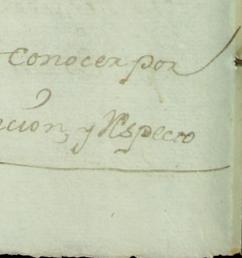 conocer por
ecion, y Respecto